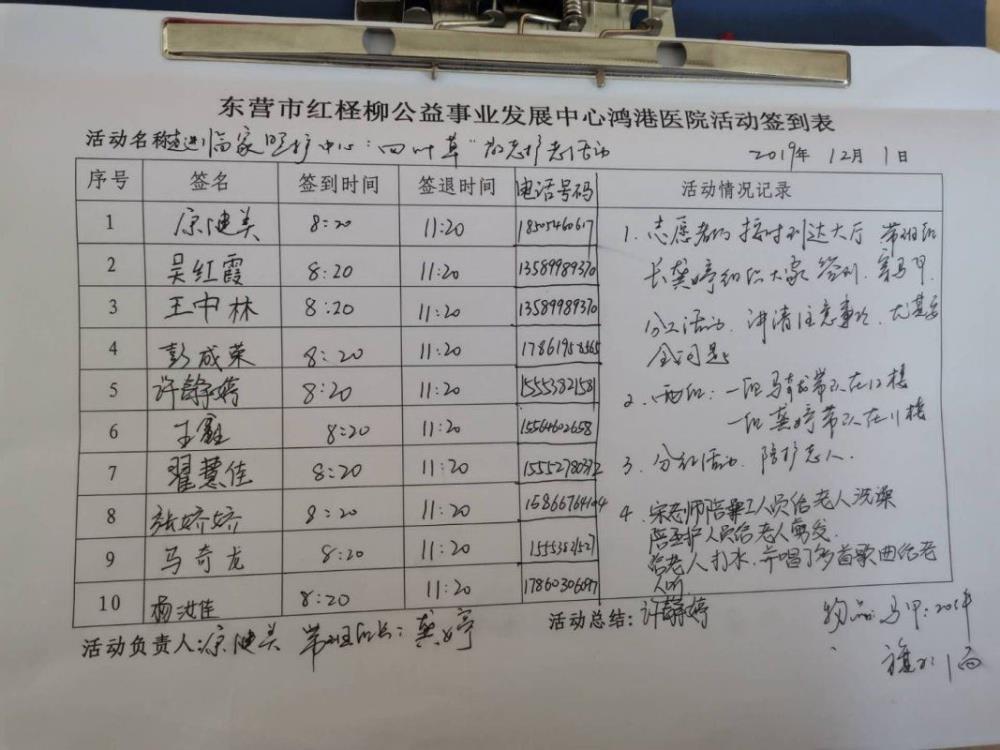 东营市红柽柳公益事业发展中心鸿港医院活动签到表
活动名称:走进临家照护中心:"四叶草"为老护老活动 2019年12月1日
序号 签名 签到时间 签退时间 电话号码 活动情况记录
1 原健美 8:20 11:20 18505460617
2 吴红霞 8:20 11:20 13589989370
3 王中林 8:20 11:20 13589989370
4 彭成荣 8:20 11:20
5 许静婷 8:20 11:20 15553821581
6 王鑫 8:20 11:20 15564602658
7 翟慧佳 8:20 11:20
8 张娇娇 8:20 11:20
9 马奇龙 8:20 11:20
10 杨汝佳 8:20 11:20
1. 志愿者们按时到达大厅 常班班
长龚婷组织大家签到、穿马甲、
分工活动、讲清注意事项、尤其安
全问题
2. 两组:一组马奇龙带队在12楼
一组龚婷带队在11楼
3. 分组活动、陪护老人.
4. 宋老师陪义工人员给老人洗澡
陪医护人员给老人剪发
给老人打水、并唱了多首歌曲给老
人听
活动负责人:原健美 常班班长:龚婷 活动总结:许静婷
物品:马甲:20件
旗:1面